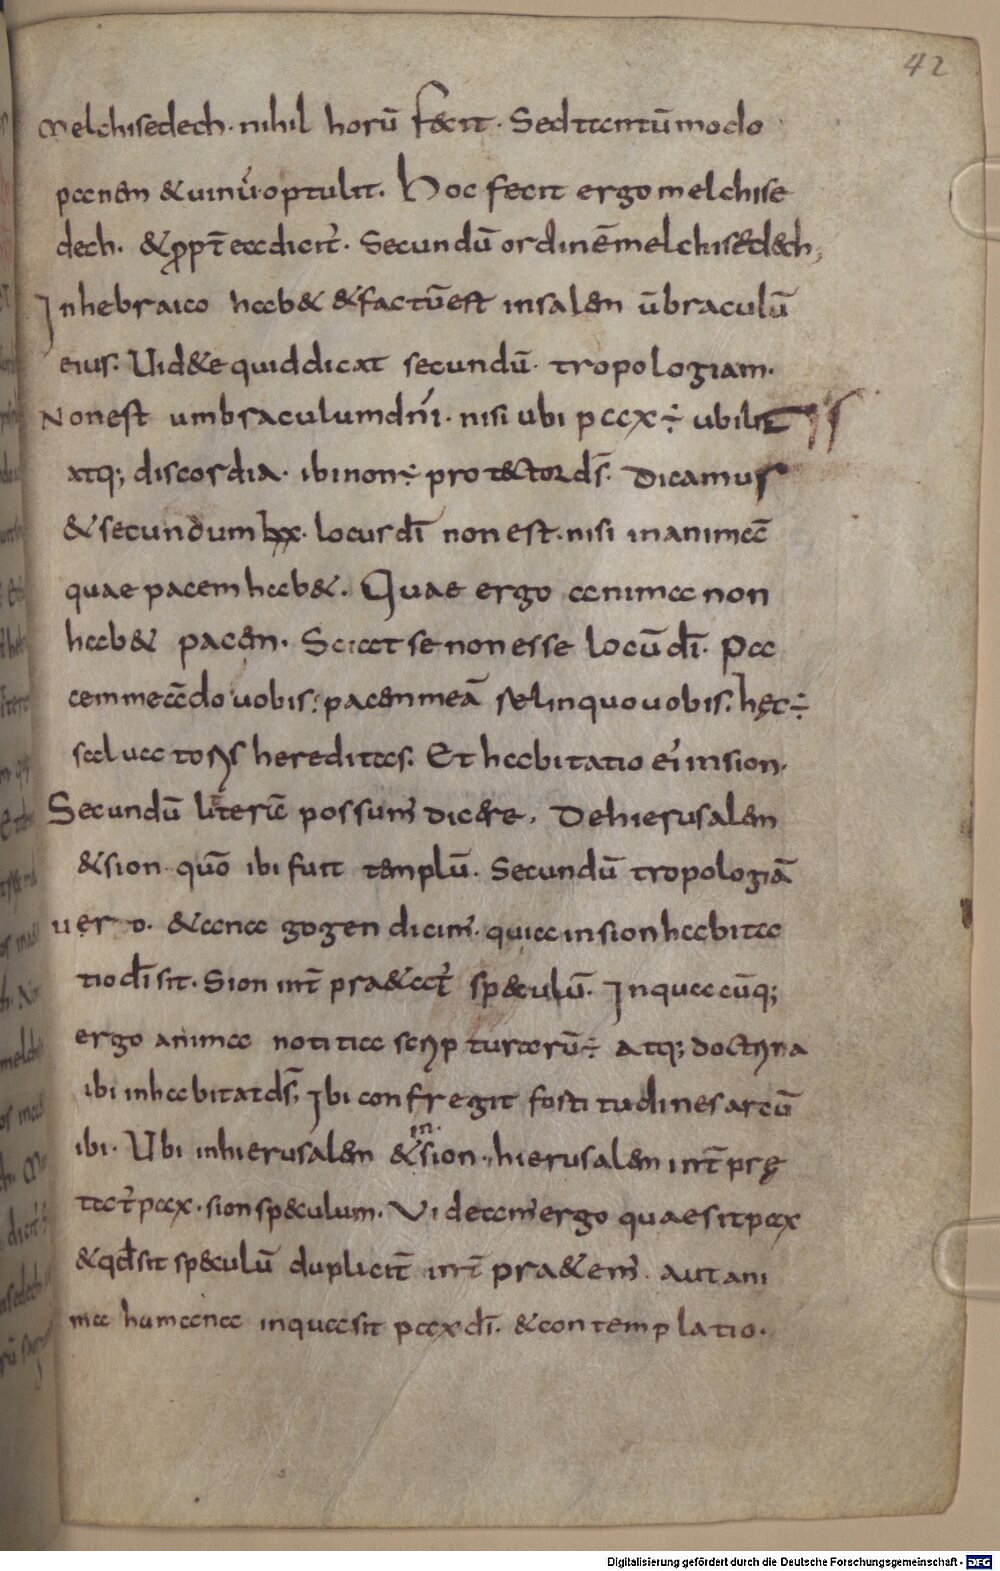 42
melchisedech· nihil horū fecit· Sed tantūmodo
panem & uinū optulit. Hoc fecit ergo melchise
dech. & ꝓpt̄ ea dicit̄· Secundū ordinē melchisedech,
In hebraico hab& & factū est in salem ūbraculū
eius. Uid&e quid dicat secundū· tropologiam·
Non est umbraculum dn̄i· nisi ubi pax ÷ ubi lis
atq; discordia· ibi non ÷ protector ds̄· Dicamus
& secundum locus dī non est· nisi in animā
quae pacem hab&. Quae ergo anima non
hab& pacem· Sciat se non esse locū dī· Pa
cem meā do uobis: pacem meā relinquo uobis: hęc ÷
saluatoris hereditas. Et habitatio ei' in sion·
Secundū literā possum' dicere, De hierusalem
& sion· quō ibi fuit templū· Secundū tropologiā
uero· & anagogen dicim'· quia in sion habita
tio dī sit· Sion int̄ pra&at̄ speculū· In quacūq;
ergo anima notitia scripturarū ÷ atq; doctrina
ibi inhabitat ds̄, Ibi confregit fortitudines arcū
ibi· Ubi in hierusalem & in· sion· hierusalem int̄ prę
tat̄ pax· sion speculum. Videam' ergo quae sit pax
& qđ sit speculū duplicit̄ int̄ pra&em'· aut ani
ma humana in qua sit pax dī· & contemplatio·
Digitalisierung gefördert durch die Deutsche Forschungsgemeinschaft - DFG